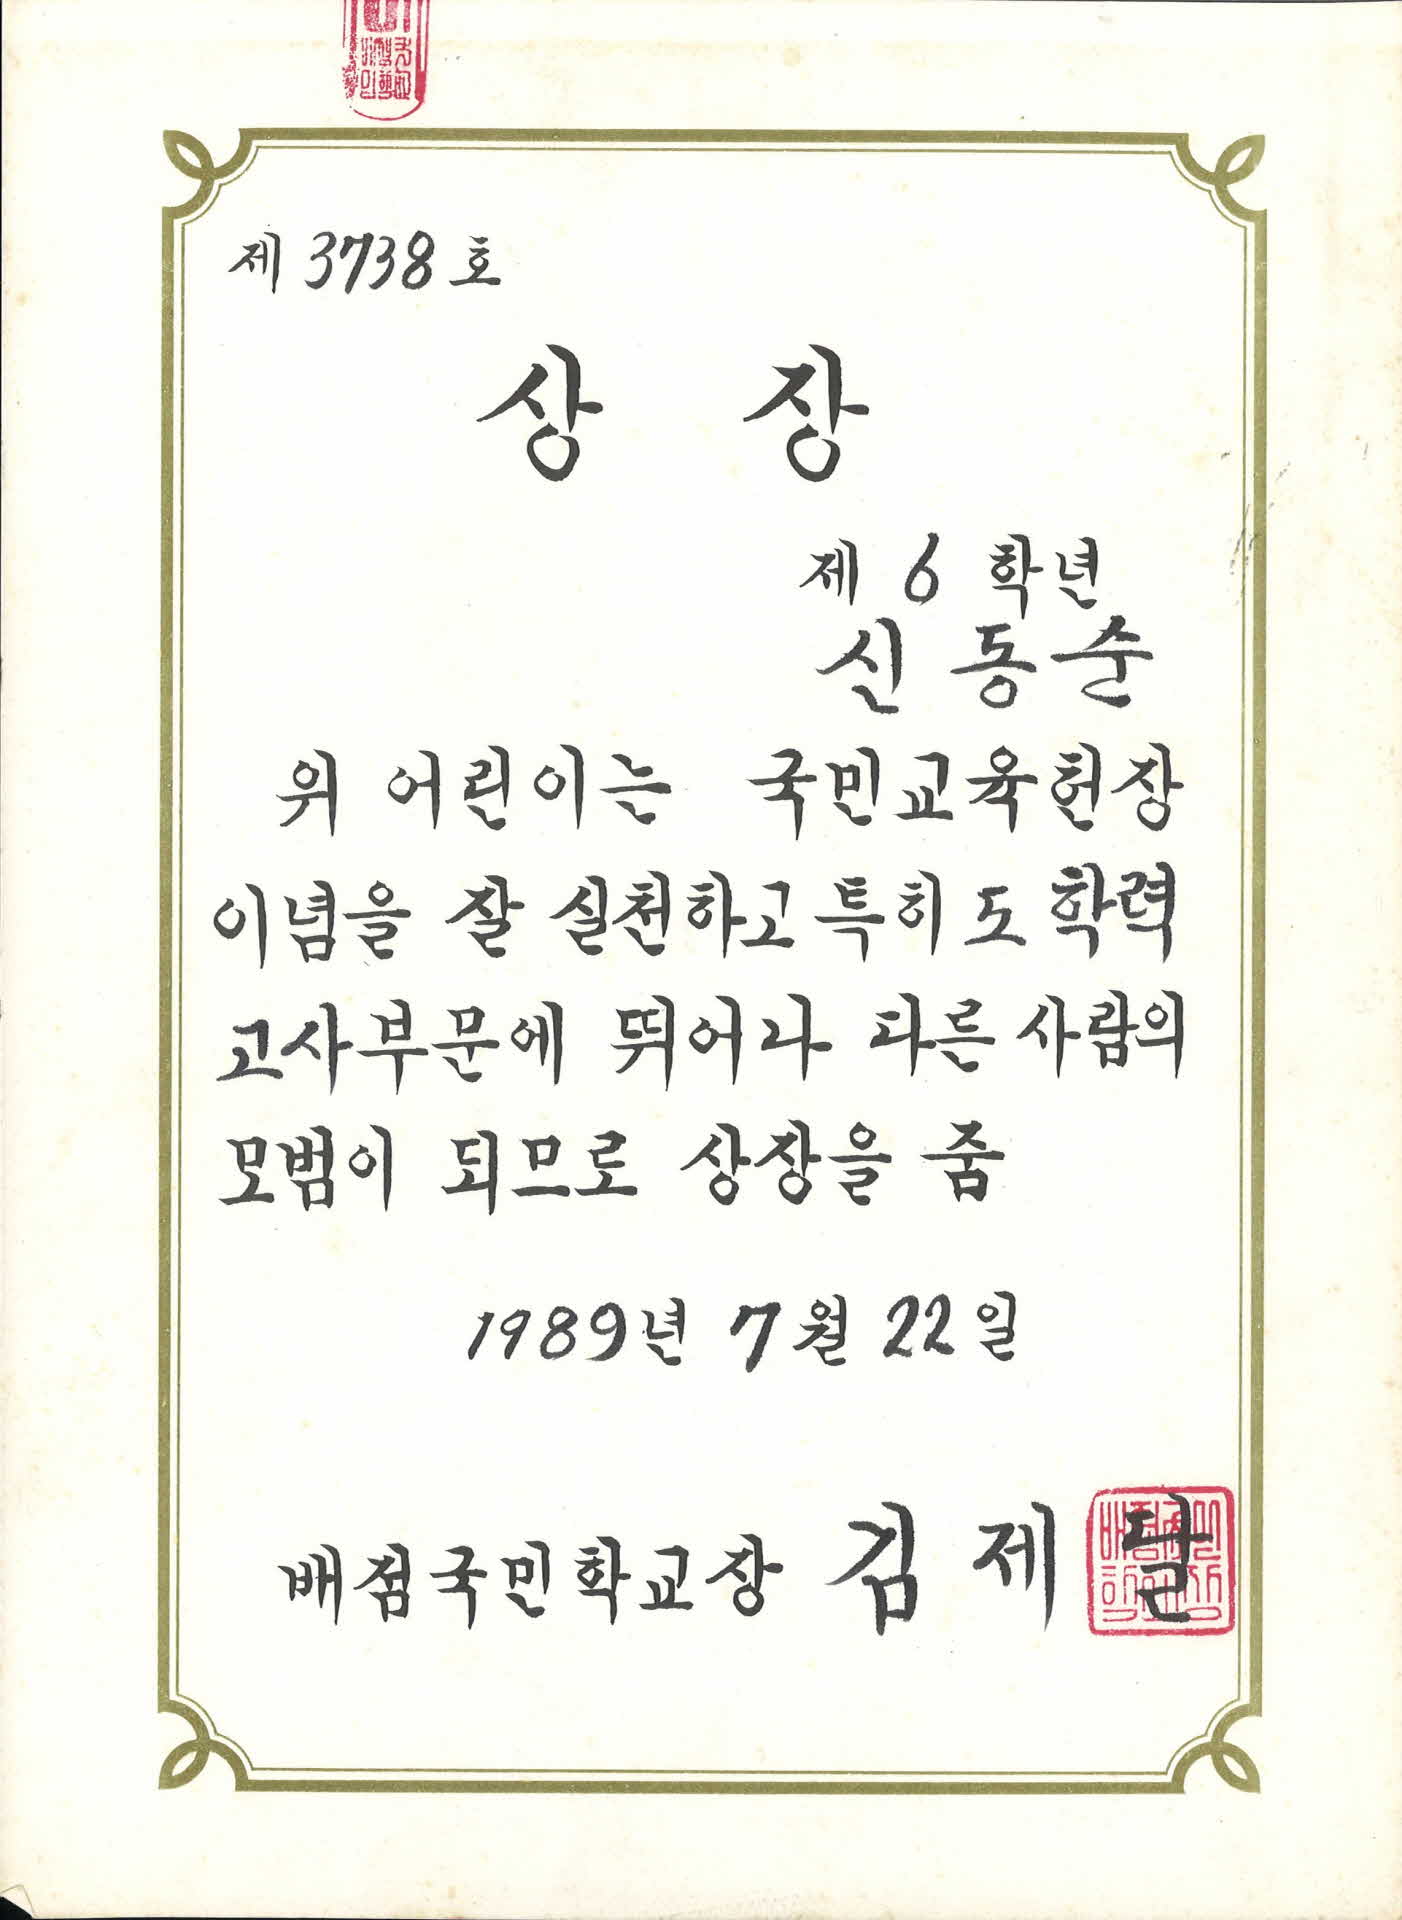 제 3738 호
상 장
제 6 학년
신 동 순
위 어린이는 국민교육헌장
이념을 잘 실천하고 특히 도 학력
고사부문에 뛰어나 다른 사람의
모범이 되므로 상장을 줌
1989년 7월 22일
배점국민학교장 김 제 달